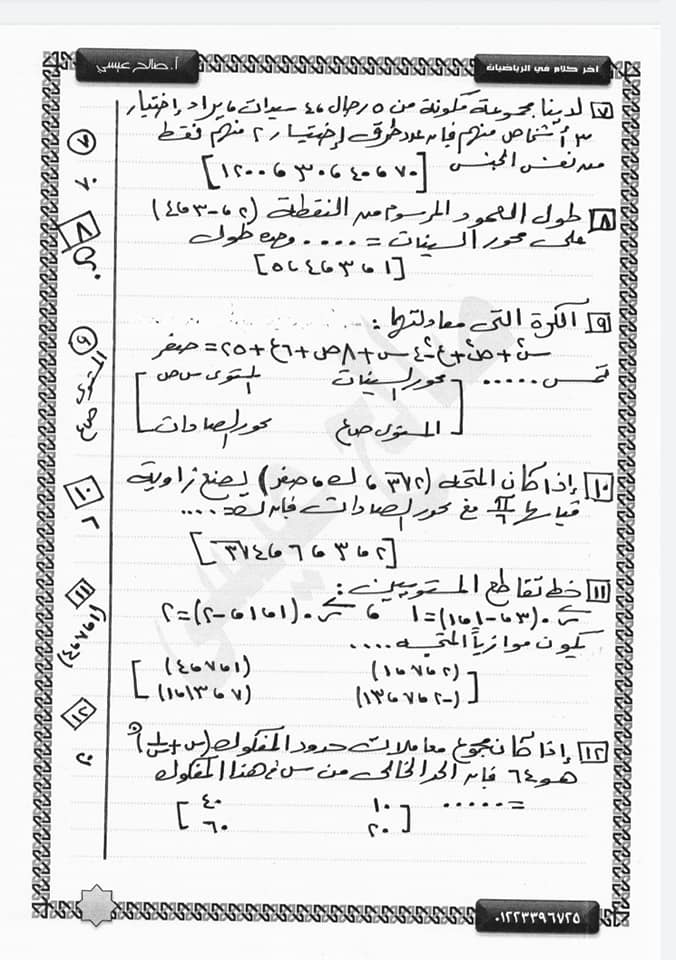 أ. صالح عيسى
اخر كلام في الرياضيات
٧ لدينا مجموعة مكونة من ٥ رجال ، ٤ سيدات ، يراد إختيار
٣ أشخاص منهم فإن عدد طرق إختيار ٢ منهم فقط
من نفس الجنس [٧٠ ، ٤٠ ، ٣٠ ، ١٢٠]
٧
٧٠
٨ طول العمود المرسوم من النقطة (٢ ، -٣ ، ٤)
على محور السينات = ..... وحدة طول
[١ ، ٣ ، ٤ ، ٥]
٨
٥
٩ الكرة التى معادلتها :
س٢ + ص٢ + ع٢ - ٤س + ٨ص + ٦ع + ٢٥ = صفر
تمس ..... [محور السينات المستوى س ص
المستوى ص ع محور الصادات]
٩
المستوى ص ع
١٠ إذا كان المتجه (٢√٣ ، ك ، صفر) يصنع زاوية
قياسها π/٦ مع محور الصادات فإن ك = ....
[٢ ، ٣ ، ٦ ، ٤√٣]
١٠
٦
١١ خط تقاطع المستويين :
ر . (٣ ، -١ ، ١) = ١ ، ر . (١ ، ١ ، -٢) = ٢
يكون موازياً المتجه ....
[(٢ ، ٧ ، ١) (١ ، ٧ ، ٤)
(-٢ ، ٧ ، ١٣) (٧ ، ١٣ ، ١)]
١١
(١ ، ٧ ، ٤)
١٢ إذا كان مجموع معاملات حدود المفكوك (س + ١/س)ن
هو ٦٤ فإن الحد الخالى من س فى هذا المفكوك
= ..... [١٠ ٤٠
٢٠ ٦٠]
١٢
٢٠
٠١٢٢٣٣٩٦٧٢٥